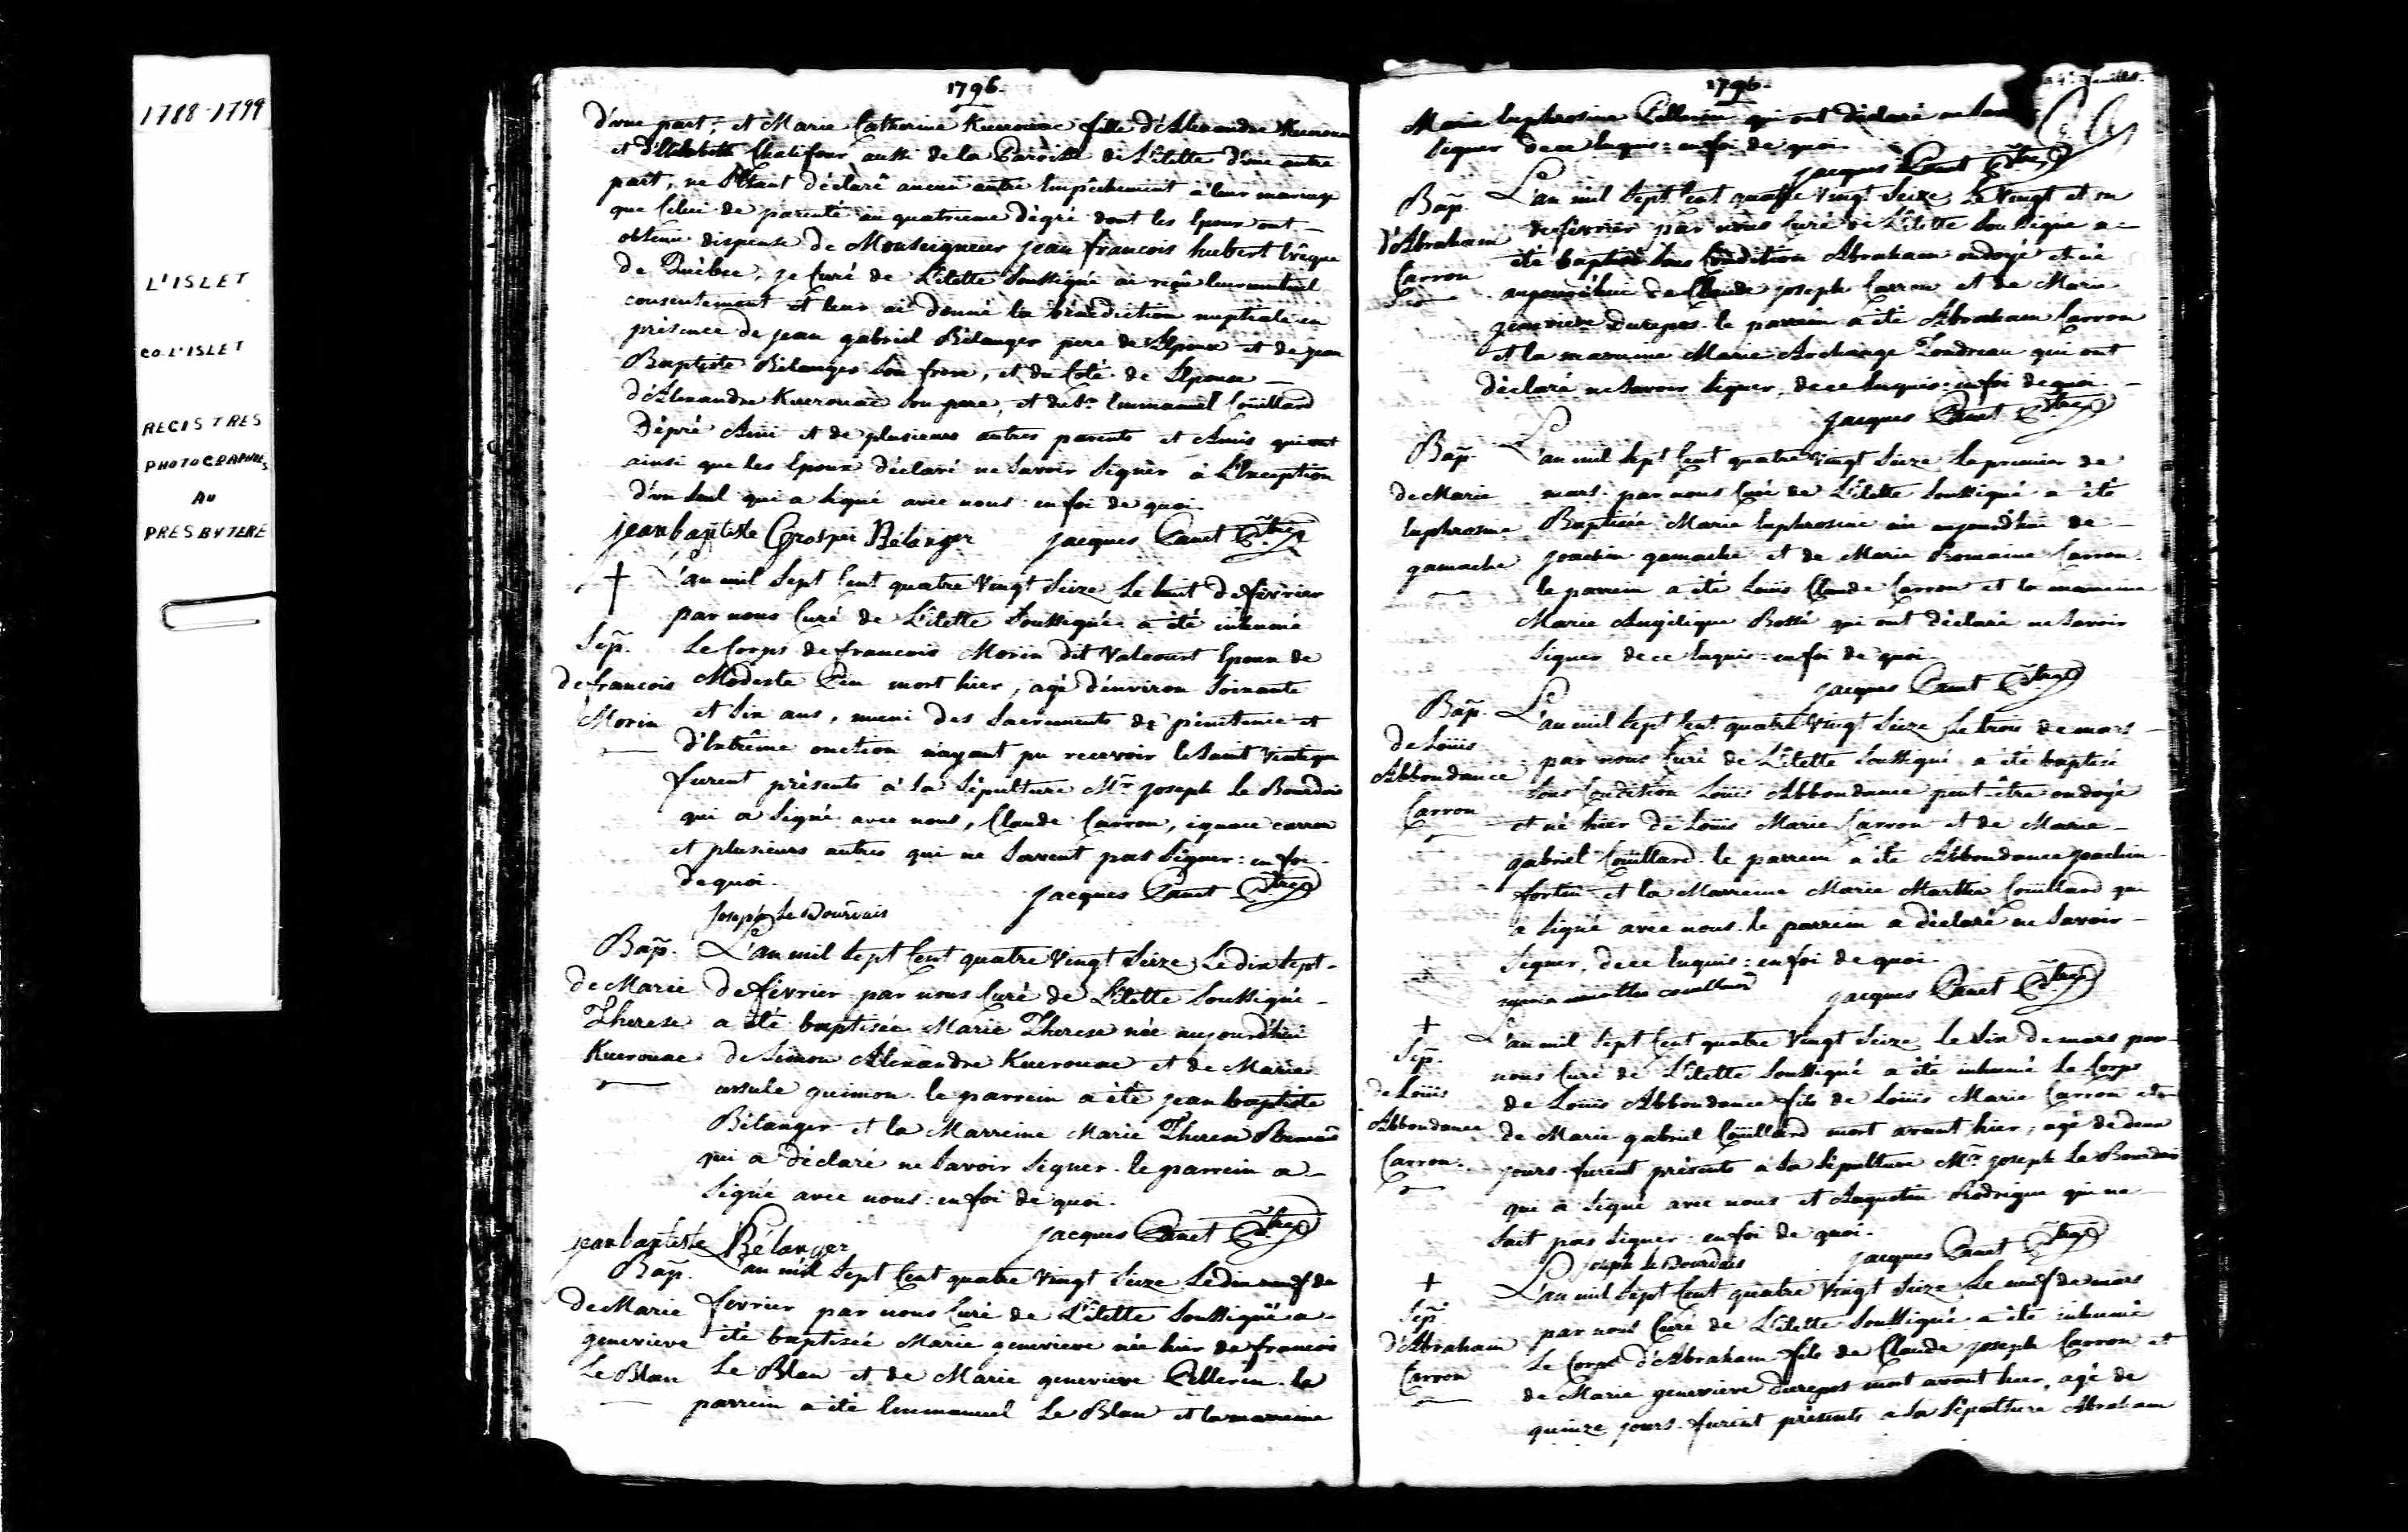 1788-1799
L'ISLET
CO. L'ISLET
REGISTRES
PHOTOGRAPHIES
AU
PRESBYTERE
1796.
d'une part; et Marie Catherine Kuerouac fille d'Alexandre Kuerouac
et d'Elizabeth Chalifour aussi de la Paroisse de L'ilette d'une autre
part, ne s'Etant déclaré aucun autre Empêchement à leur mariage
que Celui de parenté au quatrieme dégré dont les Epoux ont
obtenu dispense de Monseigneur jean francois hubert Evêque
de Québec, je Curé de L'ilette Soussigné ai reçu leur mutuel
consentement et leur ai donné la bénédiction nuptiale en
présence de jean gabriel Bélanger pere de L'Epoux et de jean
Baptiste Bélanger Son frere, et du Coté de L'Epouse
d'Alexandre Kuerouac Son pere, et du Sr Emmanuel Coüillard
Dépré Ami et de plusieurs autres parents et Amis qui ont
ainsi que les Epoux déclaré ne Savoir Signer à L'Exception
d'un Seul qui a Signé avec nous en foi de quoi
jean baptiste Prosper Bélanger jacques Panet Ptre
† L'an mil Sept Cent quatre Vingt Seize Le huit de fevrier
par nous Curé de L'ilette Soussigné a été inhumé
Sep. Le Corps de francois Morin dit Valcourt Epoux de
de francois Modeste mort hier, agé d'environ Soixante
Morin et Six ans, muni des Sacrements de pénitence et
d'Extrême onction n'ayant pu recevoir le Saint Viatique
furent présents à Sa Sépulture Mr joseph Le Bourdais
qui a Signé avec nous, Claude Carron, ignace carron
et plusieurs autres qui ne Savent pas Signer: en foi
de quoi. jacques Panet Ptre
Joseph Le Bourdais
Bap. L'an mil Sept Cent quatre Vingt Seize Le dix Sept
de Marie de fevrier par nous Curé de L'ilette Soussigné
Therese a été baptisée Marie Therese née aujourd'hui
Kuerouac de Simon Alexandre Kuerouac et de Marie
ursule guimon. le parrein a été jean baptiste
Bélanger et la Marreine Marie Therese
qui a déclaré ne Savoir Signer. le parrein a
Signé avec nous: en foi de quoi.
jean baptiste Bélanger jacques Panet Ptre
Bap. L'an mil Sept Cent quatre Vingt Seize Le dix neuf de
de Marie fevrier par nous Curé de L'ilette Soussigné a
genevieve été baptisée Marie genevieve née hier de francois
Le Blan Le Blan et de Marie genevieve Pellerin. le
parrein a été Emmanuel Le Blan et la marreine
1796.
feuillet.
Marie Euphrosine Pellerin qui ont déclaré ne
Signer de ce Enquis: en foi de quoi
jacques Panet Ptre
Bap. L'an mil Sept Cent quatre Vingt Seize Le Vingt et un
d'Abraham de fevrier par nous Curé de L'ilette Soussigné a
Carron été baptisé Sous Condition Abraham ondoyé et né
aujourd'hui de Claude joseph Carron et de Marie
genevieve Durepos. le parrein a été Abraham Carron
et la marreine Marie Archange Tondreau qui ont
déclaré ne Savoir Signer, de ce Enquis: en foi de quoi
jacques Panet Ptre
Bap. L'an mil Sept Cent quatre Vingt Seize Le premier de
de Marie mars par nous Curé de L'ilette Soussigné a été
Euphrosine Baptisée Marie Euphrosine née aujourd'hui de
gamache joachim gamache et de Marie Romaine Carron.
le parrein a été Loüis Claude Carron et la marreine
Marie Angélique Bossé qui ont déclaré ne Savoir
Signer de ce Enquis: en foi de quoi
jacques Panet Ptre
Bap. L'an mil Sept Cent quatre Vingt Seize Le trois de mars
de Loüis par nous Curé de L'ilette Soussigné a été baptisé
Abbondance Sous Condition Loüis Abbondance peut être ondoyé
Carron et né hier de Loüis Marie Carron et de Marie
gabriel Coüillard. le parrein a été Abbondance joachim
fortin et la Marreine Marie Marthe Coüillard qui
a Signé avec nous. le parrein a déclaré ne Savoir
Signer, de ce Enquis: en foi de quoi.
maria marthe couillard jacques Panet Ptre
† L'an mil Sept Cent quatre Vingt Seize Le Six de mars par
Sep. nous Curé de L'ilette Soussigné a été inhumé Le Corps
de Loüis de Loüis Abbondance fils de Loüis Marie Carron et
Abbondance de Marie gabriel Coüillard mort avant hier, agé de deux
Carron. jours. furent présents à Sa Sépulture Mr joseph Le Bourdais
qui a Signé avec nous et Augustin Rodrigue qui ne
Sait pas Signer en foi de quoi.
Joseph le Bourdais jacques Panet Ptre
† L'an mil Sept Cent quatre Vingt Seize Le neuf de mars
Sep. par nous Curé de L'ilette Soussigné a été inhumé
d'Abraham Le Corps d'Abraham fils de Claude joseph Carron et
Carron de Marie genevieve Durepos mort avant hier, agé de
quinze jours. furent présents à Sa Sépulture Abraham